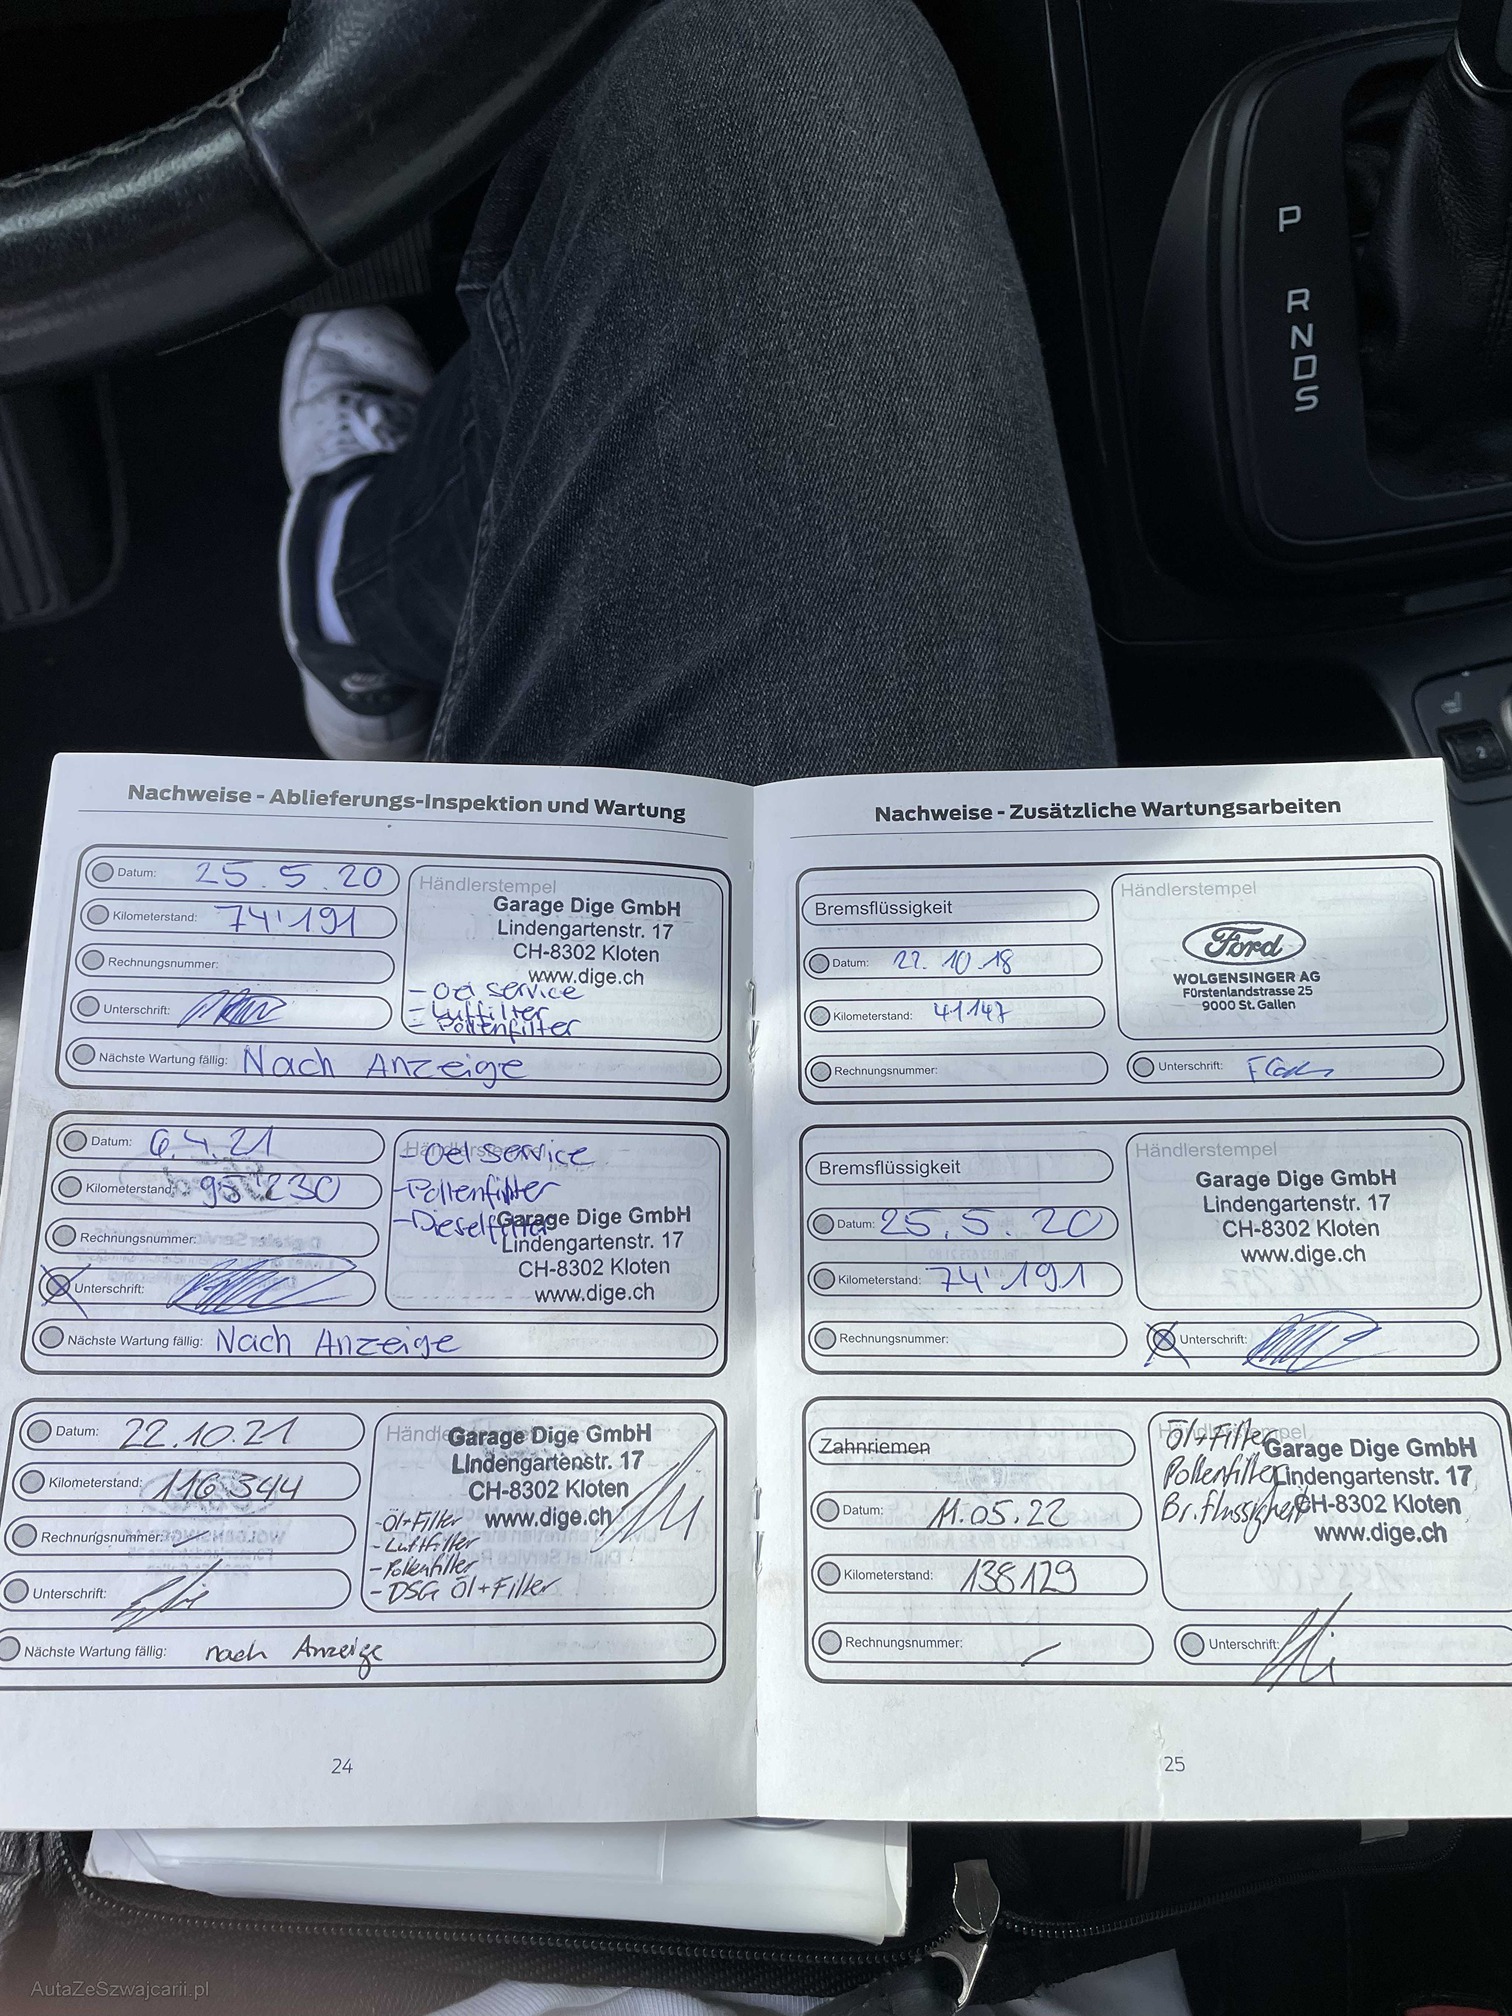 P
R
N
D
S
2
Nachweise - Ablieferungs-Inspektion und Wartung
Datum: 25.5.20
Kilometerstand: 74'191
Rechnungsnummer:
Unterschrift:
Händlerstempel
Garage Dige GmbH
Lindengartenstr. 17
CH-8302 Kloten
www.dige.ch
- Oel service
- Luftfilter
- Pollenfilter
Nächste Wartung fällig: Nach Anzeige
Datum: 6.4.21
Kilometerstand: 95'230
Rechnungsnummer:
Unterschrift:
Händlerstempel
- Oel service
- Pollenfilter
- Dieselfilter
Garage Dige GmbH
Lindengartenstr. 17
CH-8302 Kloten
www.dige.ch
Nächste Wartung fällig: Nach Anzeige
Datum: 22.10.21
Kilometerstand: 116 344
Rechnungsnummer: -
Unterschrift:
Garage Dige GmbH
Lindengartenstr. 17
CH-8302 Kloten
www.dige.ch
- Öl+Filter
- Luftfilter
- Pollenfilter
- DSG Öl+Filter
Nächste Wartung fällig: nach Anzeige
24
Nachweise - Zusätzliche Wartungsarbeiten
Bremsflüssigkeit
Datum: 22.10.18
Kilometerstand: 41147
Rechnungsnummer:
Händlerstempel
Ford
WOLGENSINGER AG
Fürstenlandstrasse 25
9000 St. Gallen
Unterschrift:
Bremsflüssigkeit
Datum: 25.5.20
Kilometerstand: 74'191
Rechnungsnummer:
Händlerstempel
Garage Dige GmbH
Lindengartenstr. 17
CH-8302 Kloten
www.dige.ch
Unterschrift:
Zahnriemen
Datum: 11.05.22
Kilometerstand: 138129
Rechnungsnummer: -
Händlerstempel
Öl+Filter
Pollenfilter
Br.flüssigkeit
Garage Dige GmbH
Lindengartenstr. 17
CH-8302 Kloten
www.dige.ch
Unterschrift:
25
AutaZeSzwajcarii.pl